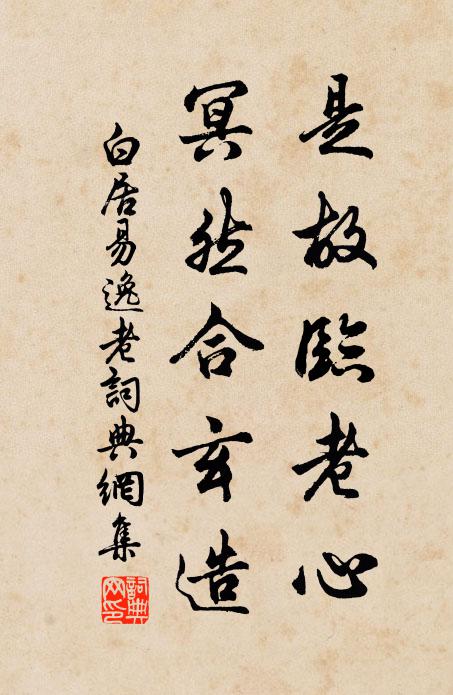 是故臨老心
冥然合玄造
白居易逸老詞典網集
詞典網印